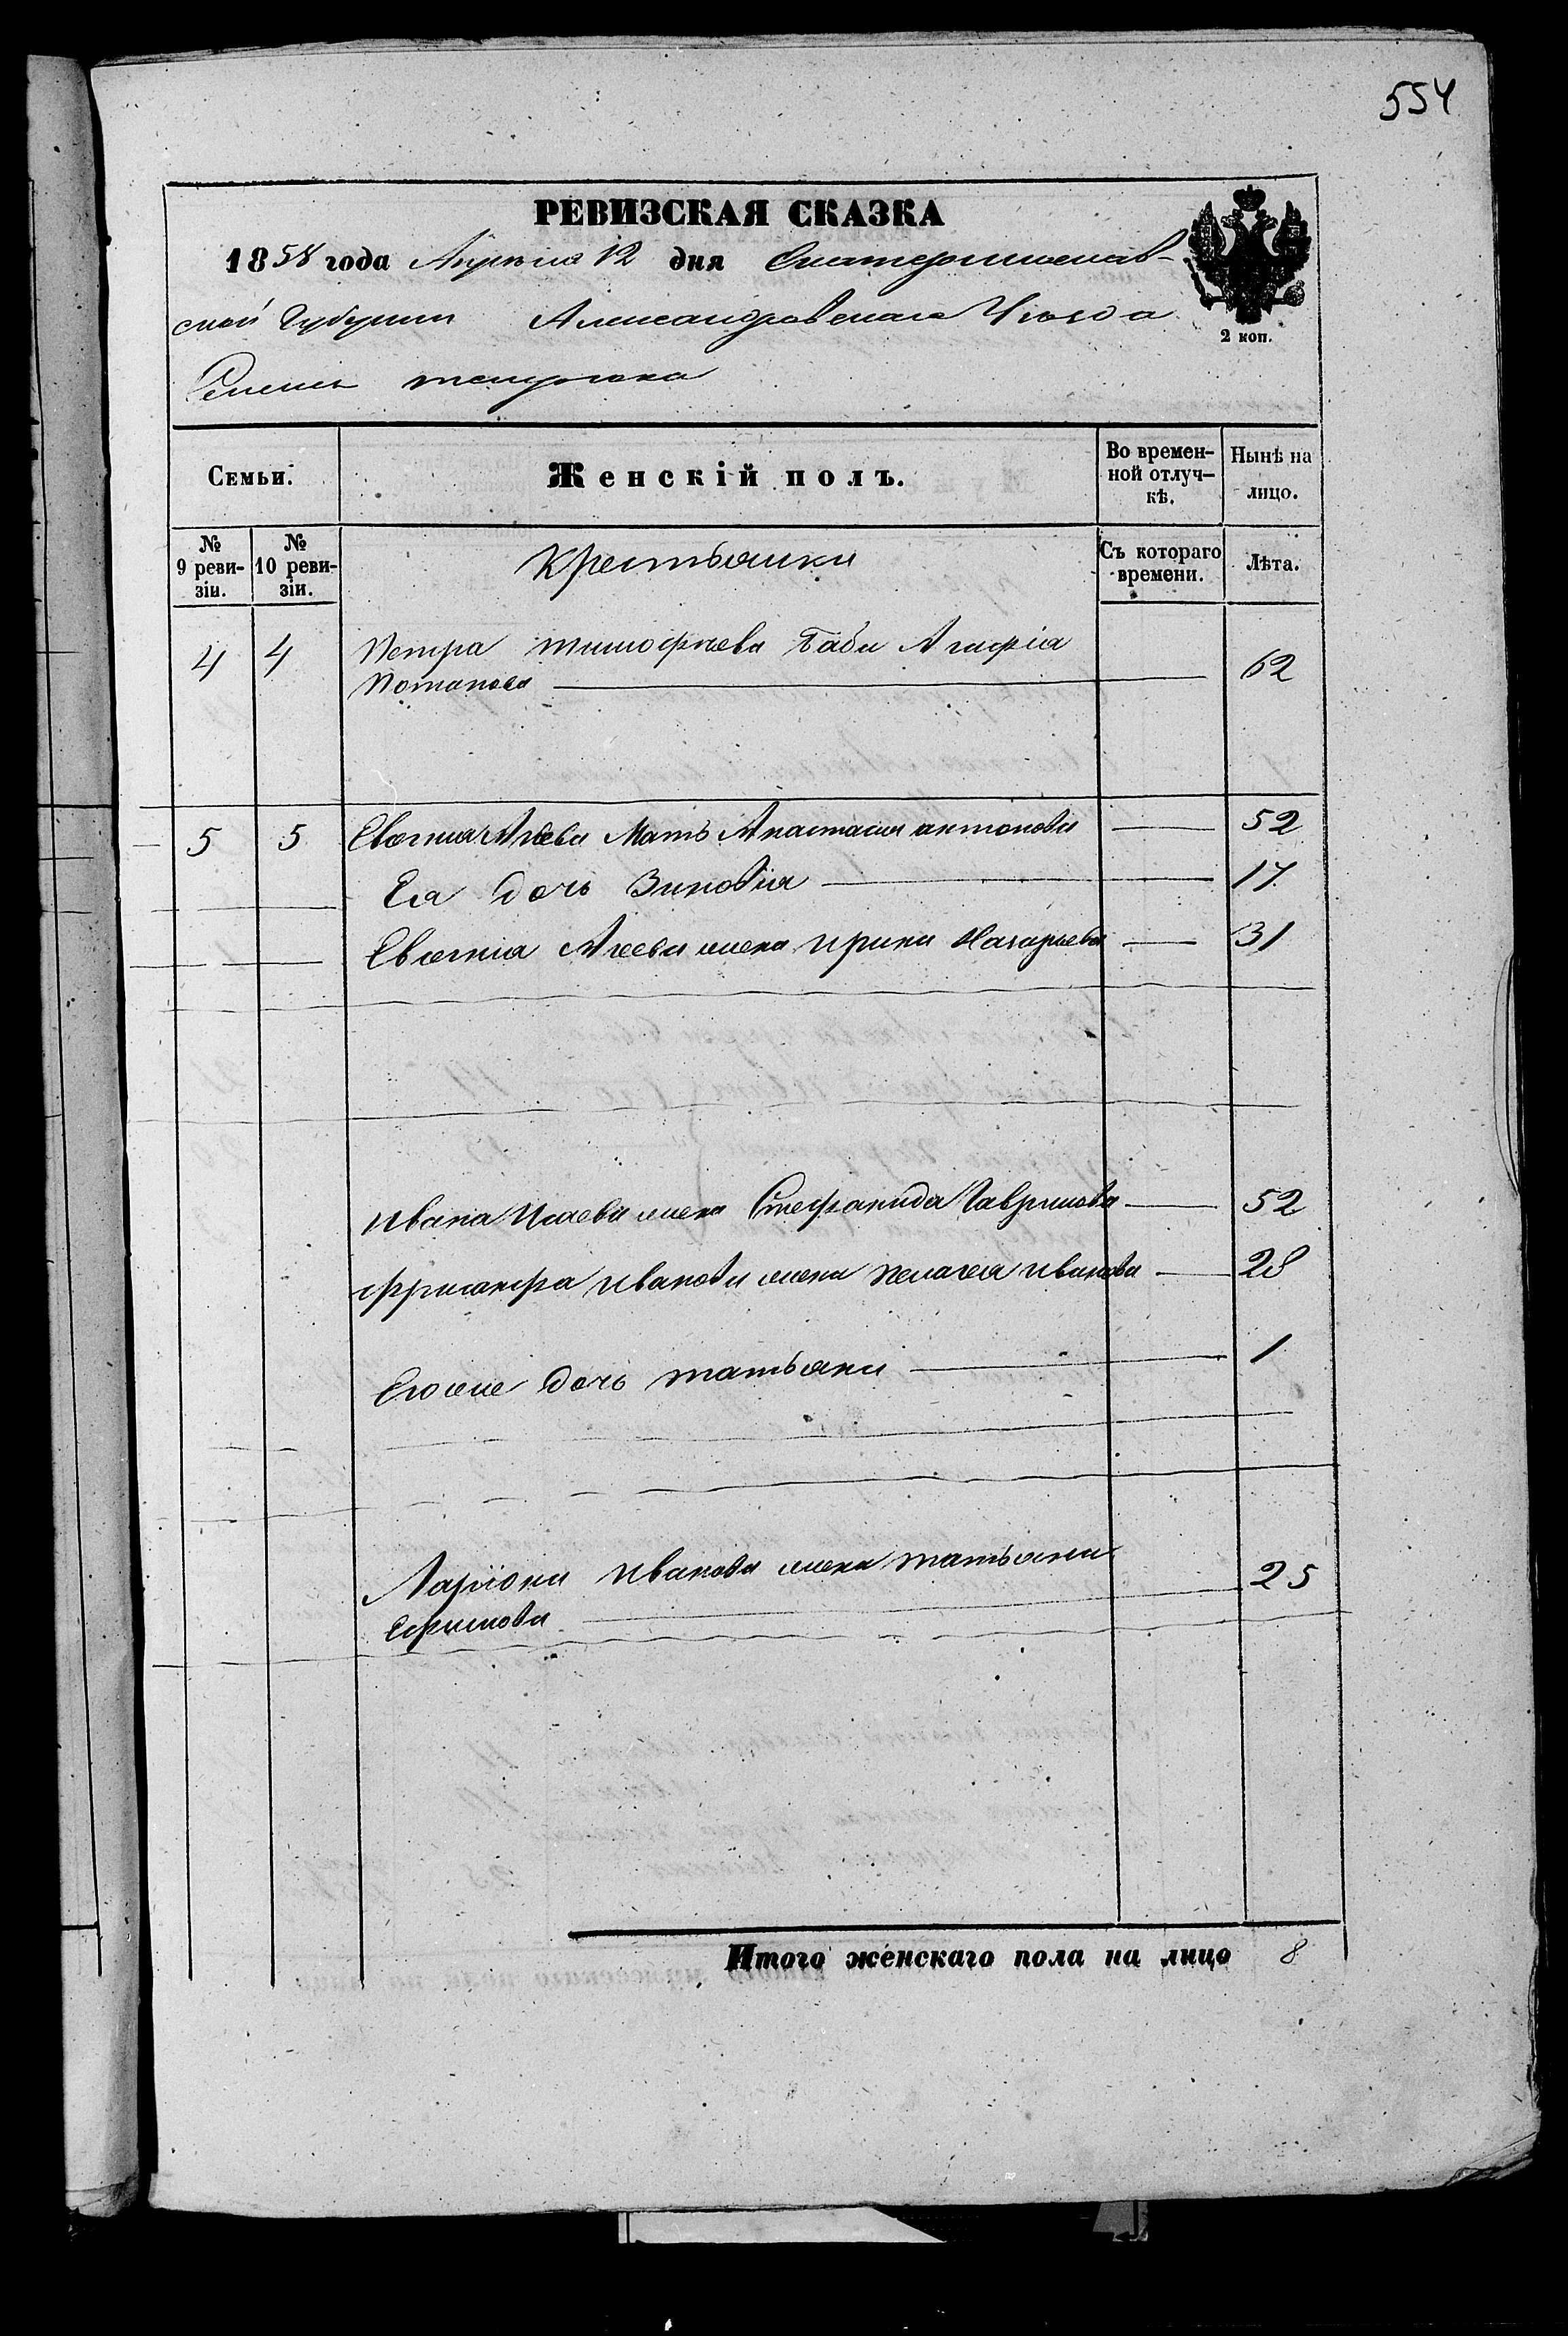 554
РЕВИЗСКАЯ СКАЗКА
1858 года Апреля 12 дня Екатеринослав-
ской Губернии Александровского Уезда
2 коп.
Семьи.
Женскій полъ.
Во времен-
ной отлуч-
кѣ.
Нынѣ на
лицо.
№
9 реви-
зіи.
№
10 реви-
зіи.
Крестьянки
Съ котораго
времени.
Лѣта.
4 4 Петра тимофеева баба Агафіа
Потапова 62
5 5 Евсегниа Агеева Мать Анастасия антонова 52
Еа дочь Зиновіа 17
Агеева жена ирина Назарьева 31
ивана Исаева жена Стефанида Гаврилова 52
иванова жена пелагеа иванова 28
Егоже дочь татьяна 1
Ларіона иванова жена татьяна 25
Ефимова
Итого женскаго пола на лицо 8